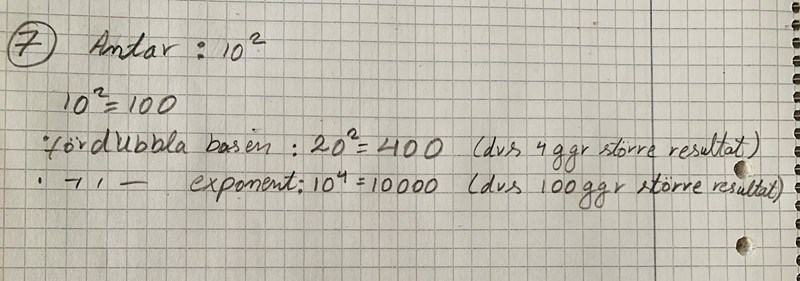 7 Antar : 10²
10² = 100
· fördubbla basen : 20² = 400 (dvs 4 ggr större resultat)
· — 〃 — exponent : 10⁴ = 10000 (dvs 100 ggr större resultat)